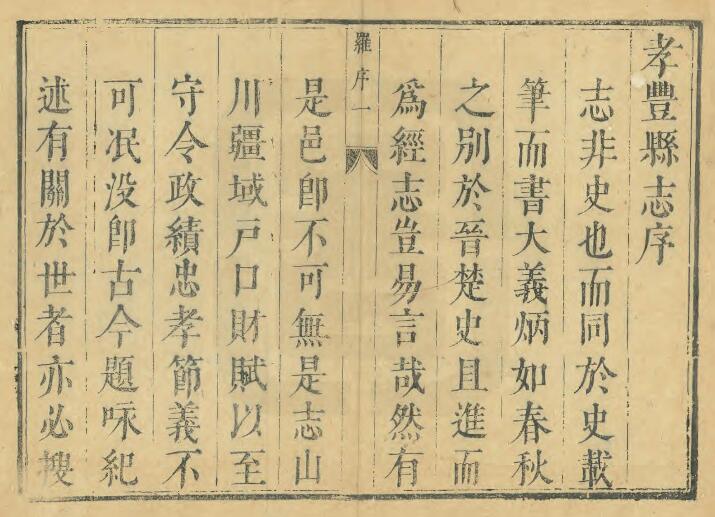 孝豐縣志序
志非史也而同於史載
筆而書大義炳如春秋
之别於晉楚史且進而
爲經志豈易言哉然有
羅序一
是邑卽不可無是志山
川疆域戸口財賦以至
守令政績忠孝節義不
可泯没卽古今題咏紀
述有關於世者亦必搜